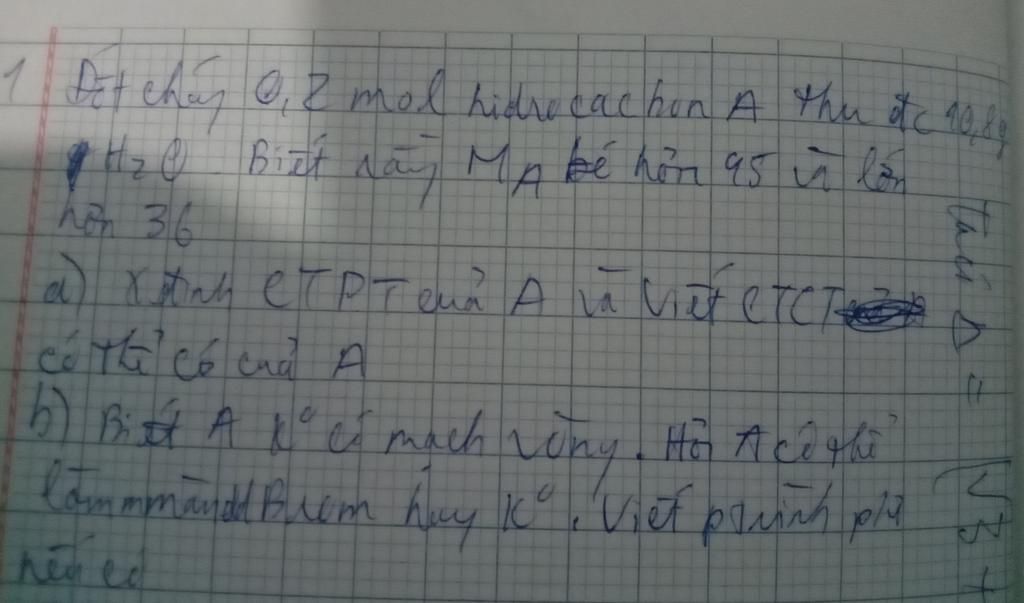 1 Đốt cháy 0,2 mol hidrocacbon A thu đc 10,8g
H2O Biết rằng MA bé hơn 95 và lớn
hơn 36
a) Xđịnh CTPT của A và Viết CTCT
có thể có của A
b) Biết A K° có mạch vòng. Hỏi A có thể
làm mm dd Brom hay K°. Viết ptrình pứ
nếu có